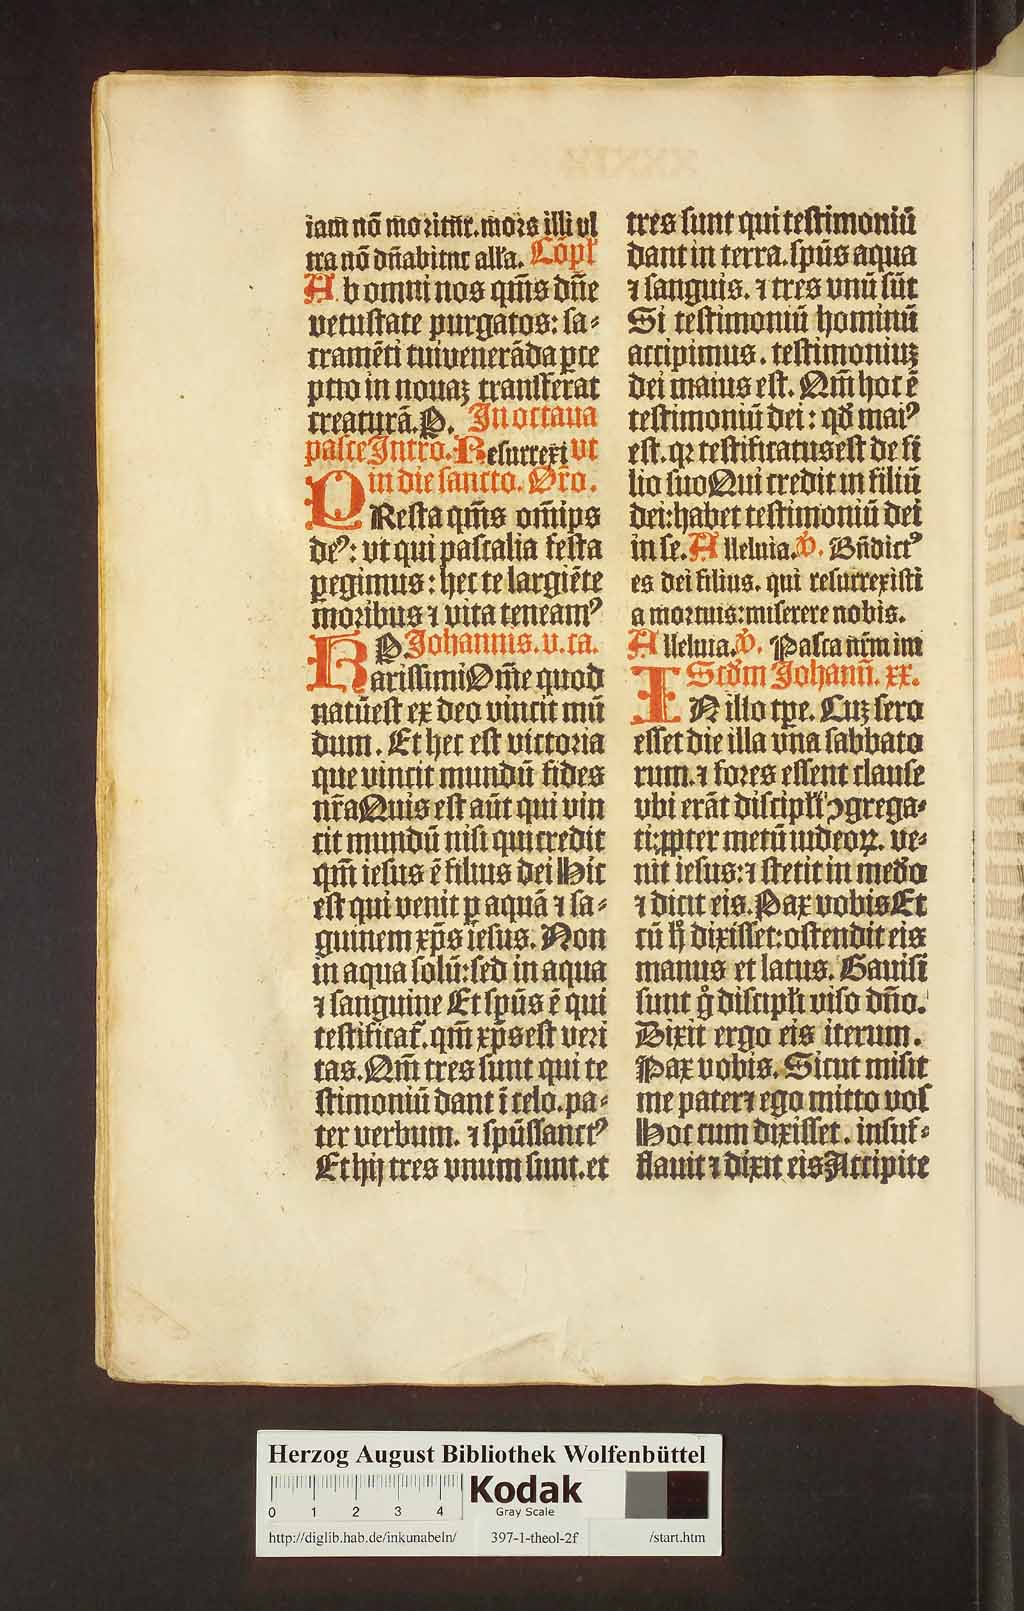 iam nō moritur. mors illi vl
tra nō dñabitur all'a. Cōpl'
Ab omni nos qm̄s dñe
vetustate purgatos: sa⸗
cramēti tui venerāda ꝑce
ptio in nouaꝫ transferat
creaturā. P. In octaua
pasce Intro. Resurrexi vt
in die sancto. Oro.
PResta qm̄s om̄ips
deꝰ: vt qui pascalia festa
ꝑegimus: hec te largiēte
moribus ⁊ vita teneamꝰ
P. Johannis. v. ca.
Karissimi Om̄e quod
natūest ex deo vincit mū
dum. Et hec est victoria
que vincit mundū fides
nr̄a Quis est aūt qui vin
cit mundū nisi qui credit
qm̄ iesus ē filius dei Hic
est qui venit ꝑ aquā ⁊ sa⸗
guinem xp̄s iesus. Non
in aqua solū: sed in aqua
⁊ sanguine Et sp̄us ē qui
testificat᷑. qm̄ xp̄s est veri
tas. Qm̄ tres sunt qui te
stimoniū dant ī celo. pa⸗
ter verbum. ⁊ sp̄ussanctꝰ
Et hij tres vnum sunt. et
tres sunt qui testimoniū
dant in terra. sp̄us aqua
⁊ sanguis. ⁊ tres vnū sūt
Si testimoniū hominū
accipimus. testimoniuꝫ
dei maius est. Qm̄ hoc ē
testimoniū dei: qď maiꝰ
est. qꝛ testificatus est de fi
lio suo Qui credit in filiū
dei: habet testimoniū dei
in se. Alleluia. V̓. Bñdictꝰ
es dei filius. qui resurrexisti
a mortuis: miserere nobis.
Alleluia. V̓. Pasca nr̄m im
Scďm Johann̄. xx.
IN illo tꝑe. Cuꝫ sero
esset die illa vna sabbato
rum. ⁊ fores essent clause
vbi erāt discipl'i ꝯgrega⸗
ti: ꝓpter metū iudeoꝝ. ve⸗
nit iesus: ⁊ stetit in medio
⁊ dicit eis. Pax vobis Et
cū h̓ dixisset: ostendit eis
manus et latus. Gauisi
sunt g̊ discipl'i viso dño.
Dixit ergo eis iterum.
Pax vobis. Sicut misit
me pater ⁊ ego mitto vos
Hoc cum dixisset. insuf⸗
flauit ⁊ dixit eis Accipite
Herzog August Bibliothek Wolfenbüttel
0 1 2 3 4 Kodak
Gray Scale
http://diglib.hab.de/inkunabeln/ 397-1-theol-2f /start.htm